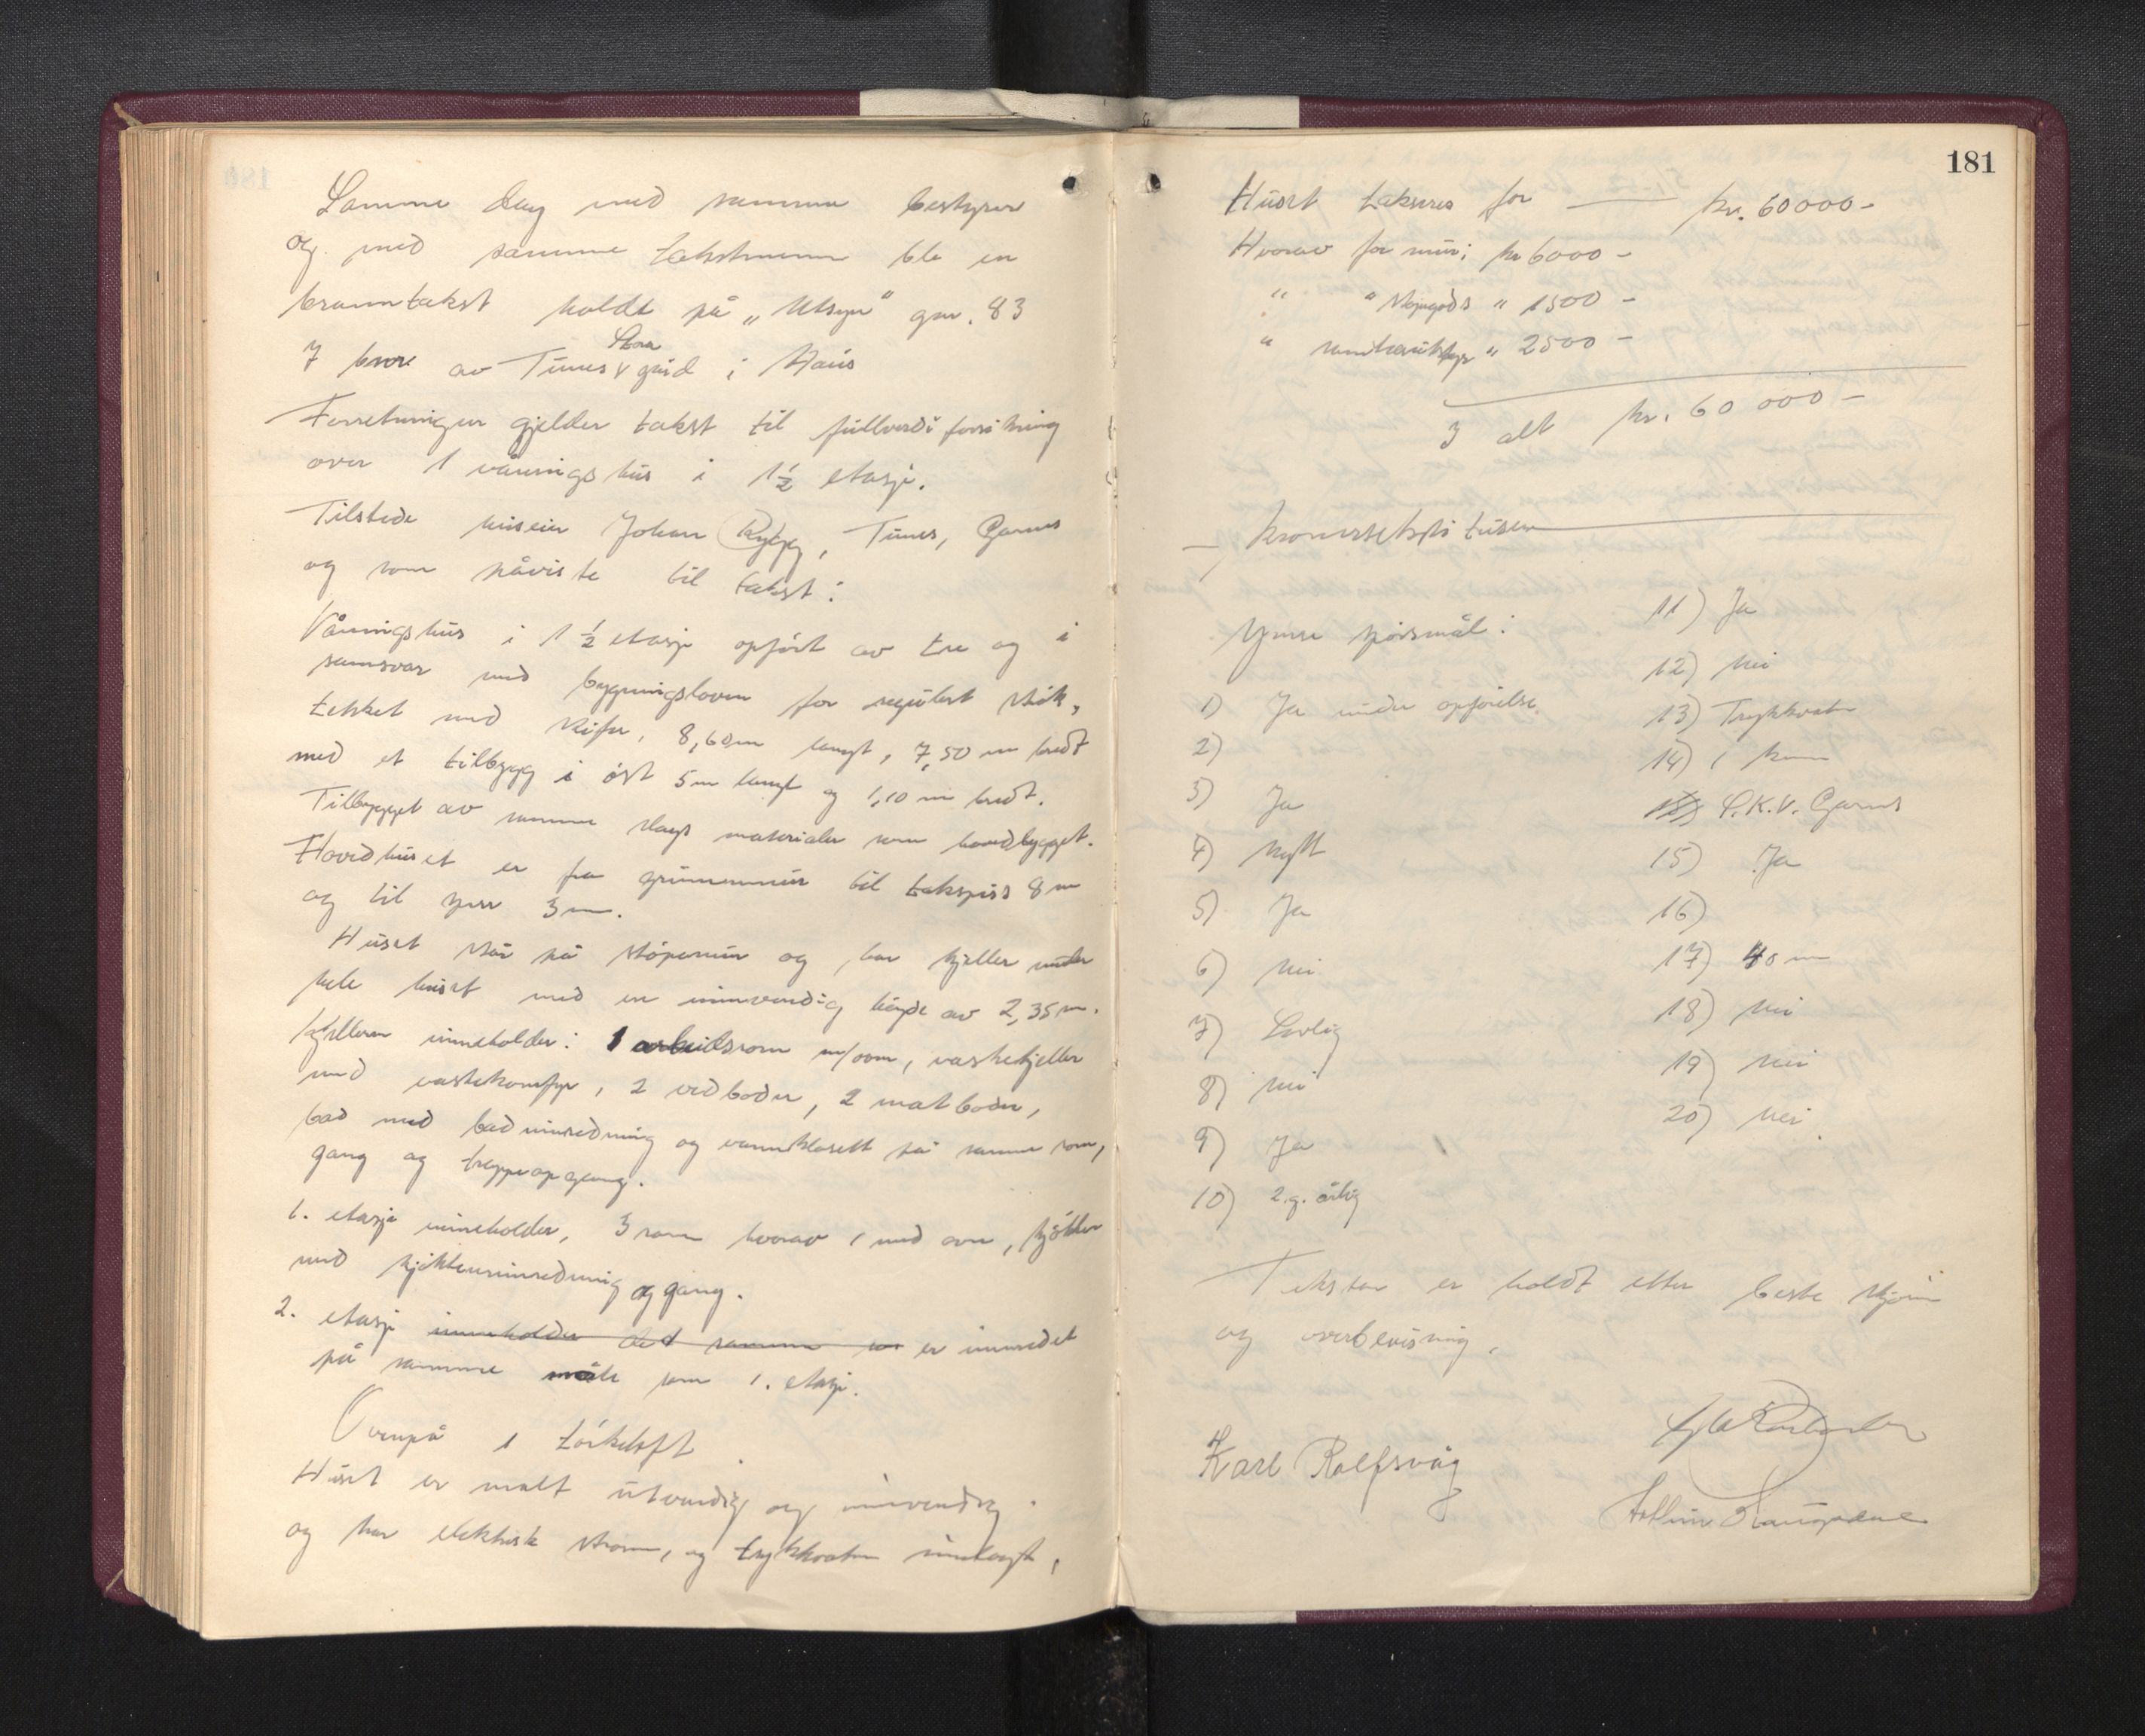 Samme dag med samme bestyrer
og med samme takstmenn ble en
branntakst holdt på „Utsyn" gnr. 83
7 bnr av Tunes Stora gård i Haus
Forretningen gjelder takst til fullverdiforsikring
over 1 våningshus i 1½ etasje.
Tilstede huseier Johan Rypp, Tunes, Garnes
og som påviste til takst:
Våningshus i 1½ etasje opført av tre og i
samsvar med bygningsloven for regulert strøk,
tekket med skifer, 8,60m langt, 7,50 m bredt
med et tilbygg i øst 5m langt og 1,10 m bredt.
Tilbygget av samme slags materialer som hovedbygget.
Hovedhuset er fra grunnmur til takspiss 8 m
og til gesims 3m.
Huset står på støpemur og har kjeller under
hele huset med en innvendig høyde av 2,35 m.
Kjelleren inneholder: 1 arbeidsrom m/ovn, vaskekjeller
med vaskekomfyr, 2 vedboder, 2 matboder,
bad med badinnredning og vannklosett på samme rom,
gang og trappeopgang.
1. etasje inneholder, 3 rom hvorav 1 med ovn, kjøkken
med kjøkkeninnredning og gang.
2. etasje inneholder det samme er innredet
på samme måte som 1. etasje.
Ovenpå 1 tørkeloft.
Huset er malt utvendig og innvendig
og har elektrisk strøm, og trykkvatn innlagt,
181
Huset takseres for kr. 60000-
Hvorav for mur: kr 6000-
" " støpegods " 1500-
" vannledning " 2500-
I alt kr. 60 000-
Ymse spørsmål:
1) Ja under opførelse.
2)
3) Ja
4) Nytt
5) Ja
6) Nei
7) Lovlig
8) Nei
9) Ja
10) 2.g. årlig
11) Ja
12) Nei
13) Trykkvatn
14) 1 km
15) S.K.V. Garnes
15) Ja
16)
17) 40 m
18) Nei
19) Nei
20) Nei.
Taksten er holdt etter beste skjønn
og overbevisning.
Karl Rolfsvåg